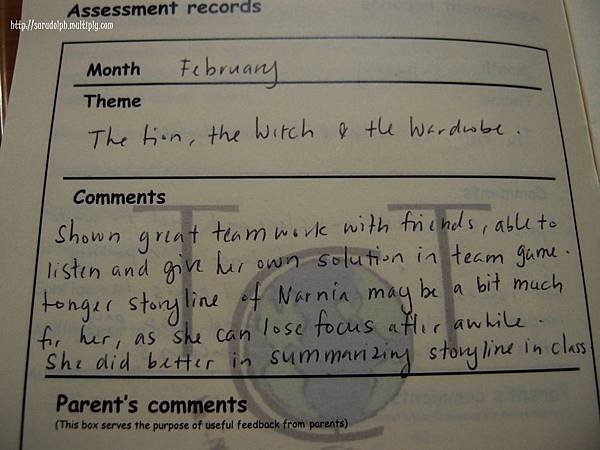 Assessment records
http://sarudolph.multiply.com
Month February
Theme
The Lion, the Witch & the Wardrobe.
Comments
Shown great teamwork with friends, able to
listen and give her own solution in team game.
Longer storyline of Narnia may be a bit much
for her, as she can lose focus after awhile.
She did better in summarizing storyline in class.
TCT
Parent's comments
(This box serves the purpose of useful feedback from parents)